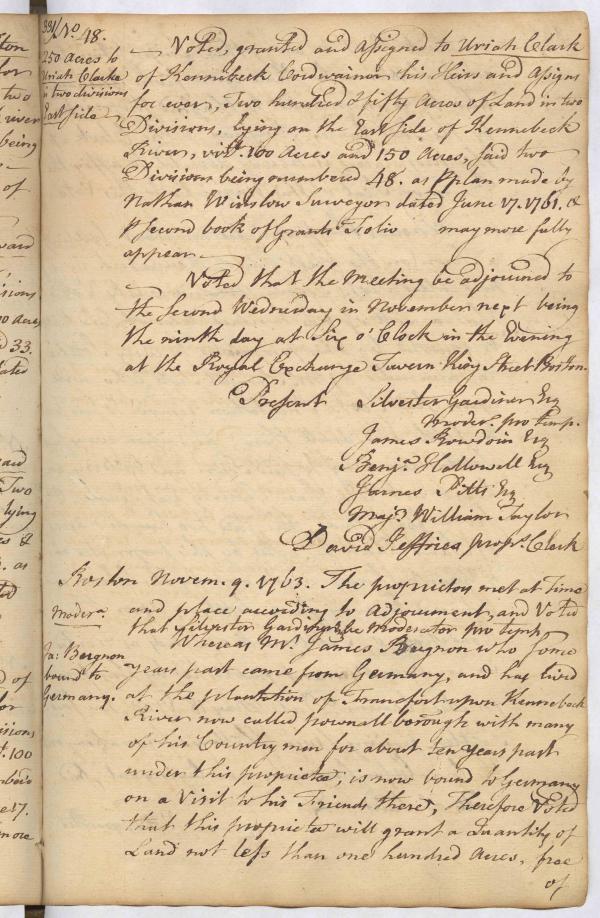 331/ No. 48.
250 Acres to
Uriah Clarke
in two divisions
East side
Voted, granted and assigned to Uriah Clark
of Kennebeck Cordwainer his Heirs and Assigns
for ever, Two hundred & fifty Acres of Land in two
Divisions, lying on the East side of Kennebeck
River, vizt. 100 Acres and 150 Acres, said two
Divisions being numbered 48. as p plan made by
Nathan Winslow Surveyor dated June 17. 1761. &
p second book of Grants Folio may more fully
appear.
Voted that the Meeting be adjourned to
the second Wednesday in November next being
the ninth day at Six o'Clock in the Evening
at the Royal Exchange Tavern King Street Boston.
Present Silvester Gardiner Esq
Moder. pro temp.
James Bowdoin Esq
Benja. Hallowell Esq
James Pitts Esq
Majr. William Taylor
David Jeffries Proprs. Clerk
Boston Novem. 9. 1763. The proprietors met at Time
and place according to Adjournment, and Voted
Modera.
that Silvester Gardiner be Moderator pro temp
Whereas Mr. James Bugnon who some
Ja: Bugnon
bound to
Germany.
years past came from Germany, and has lived
at the plantation of Francfort upon Kennebeck
River now called pownallborough with many
of his Country men for about ten years past
under this proprietee, is now bound to Germany
on a Visit to his Friends there, Therefore Voted
that this proprietee will grant a Quantity of
Land not less than one hundred Acres, free
of